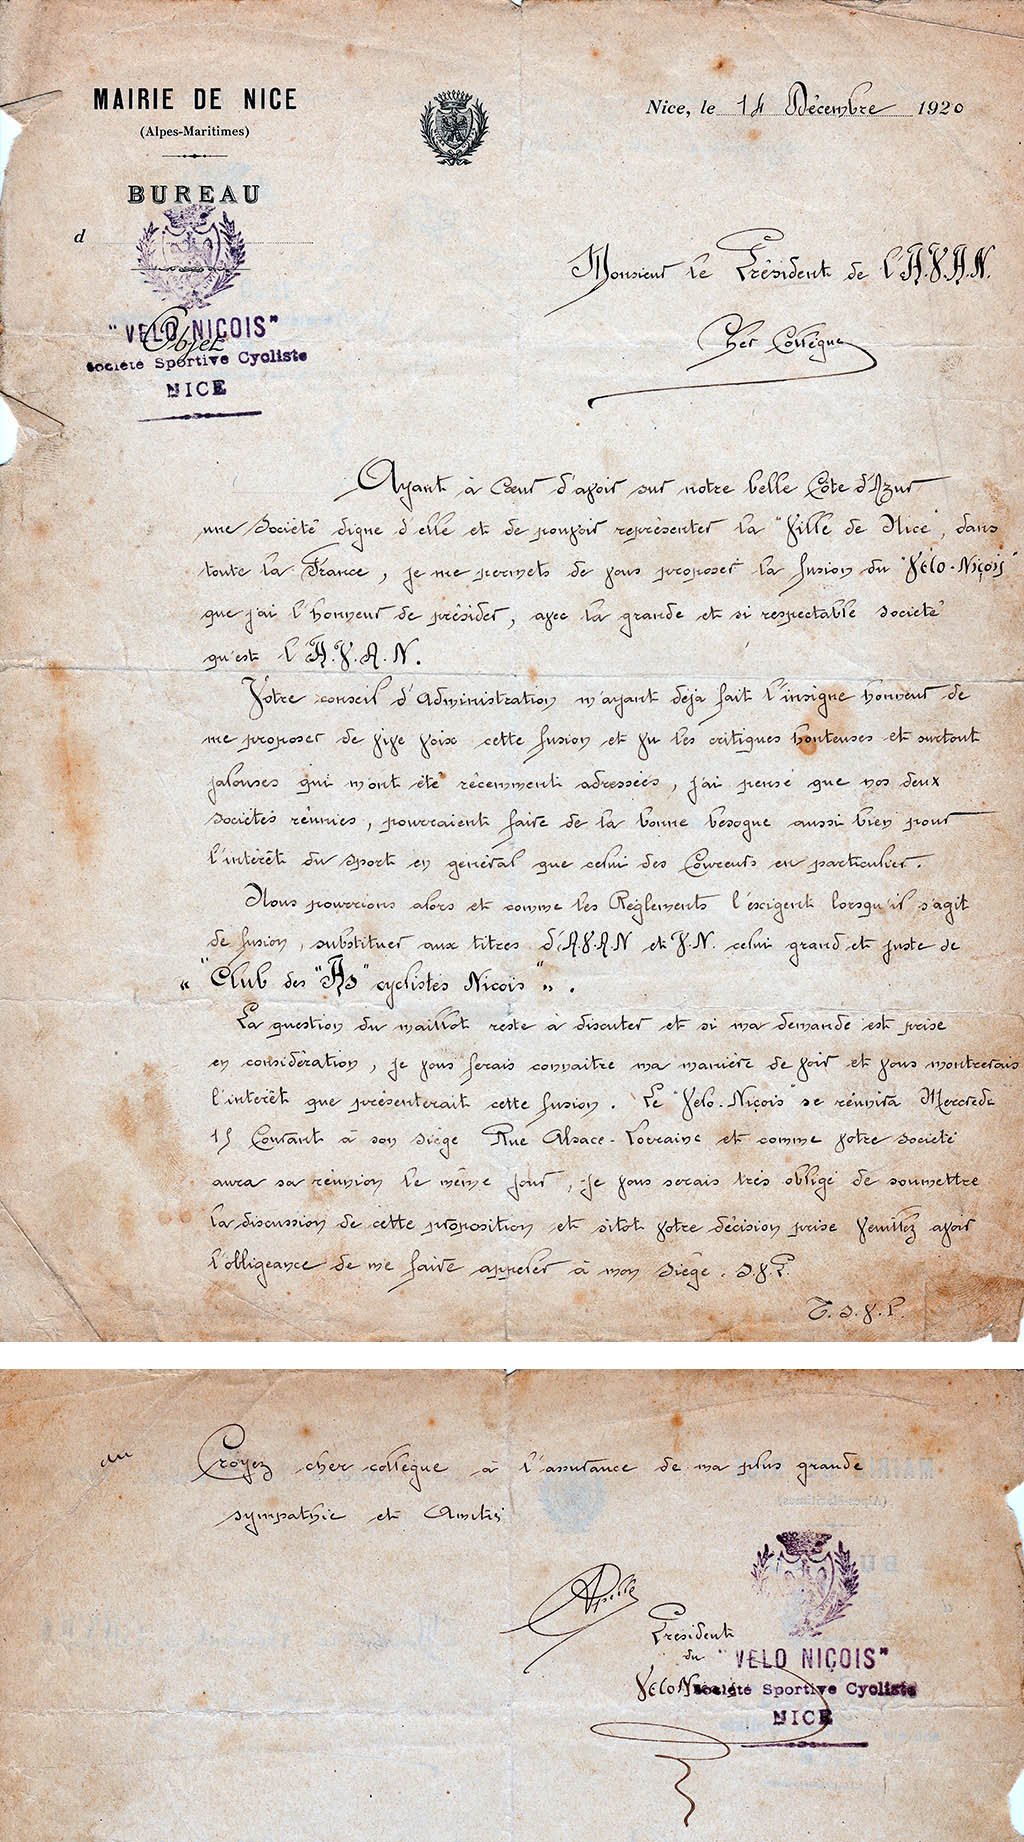 MAIRIE DE NICE
(Alpes-Maritimes)
BUREAU
d
Nice, le 14 Décembre 1920
Objet
"VELO NIÇOIS"
Société Sportive Cycliste
NICE
Monsieur le Président de l'A.V.A.N.
Cher Collègue
Ayant à Cœur d'avoir sur notre belle Côte d'Azur
une Société digne d'elle et de pouvoir représenter la "Ville de Nice", dans
toute la France, je me permets de vous proposer la fusion du "Vélo-Niçois"
que j'ai l'honneur de présider, avec la grande et si respectable société
qu'est l'A.V.A.N.
Votre conseil d'Administration m'ayant déjà fait l'insigne honneur de
me proposer de vive voix cette fusion et vu les critiques honteuses et surtout
jalouses qui m'ont été récemment adressées, j'ai pensé que nos deux
sociétés réunies, pourraient faire de la bonne besogne aussi bien pour
l'intérêt du sport en général que celui des Coureurs en particulier.
Nous pourrions alors et comme les Réglements l'éxigent lorsqu'il s'agit
de fusion, substituer aux titres d'A.V.A.N et V.N. celui grand et juste de
« "Club des "As" cyclistes Niçois" » .
La question du maillot reste à discuter et si ma demande est prise
en considération, je vous ferais connaitre ma manière de voir et vous montrerais
l'intérêt que présenterait cette fusion. Le "Vélo-Niçois" se réunira Mercredi
15 Courant à son siège Rue Alsace-Lorraine et comme votre société
aura sa réunion le même jour, je vous serais très obligé de soumettre
la discussion de cette proposition et sitot votre décision prise veuillez avoir
l'obligeance de me faire appeler à mon siège. S.V.P.
T.S.V.P.
Croyez cher collègue à l'assurance de ma plus grande
sympathie et Amitié
Président
du
Vélo Niçois
"VELO NIÇOIS"
Société Sportive Cycliste
NICE